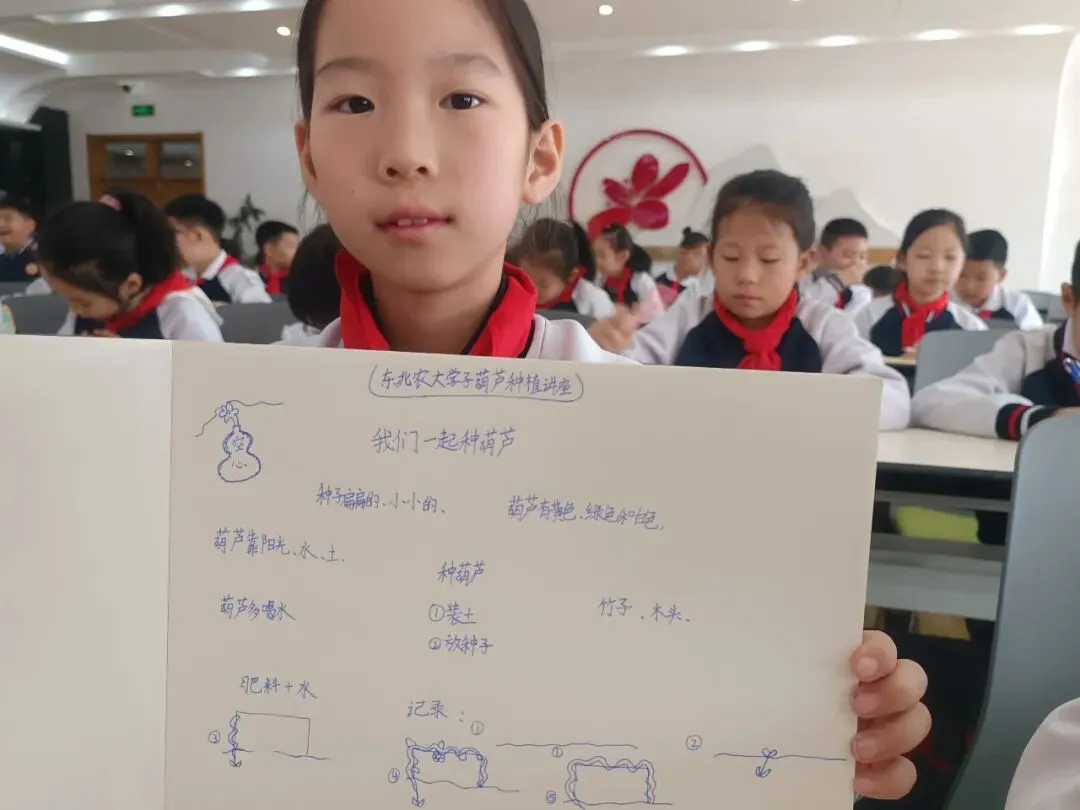 (东北农大学子葫芦种植讲座)
我们一起种葫芦
种子扁扁的、小小的、
葫芦有黄色、绿色和白色,
葫芦靠阳光、水、土.
种葫芦
葫芦多喝水
①装土
竹子、木头、
②放种子
肥料+水
记录:
①
①
②
③
④
⑤